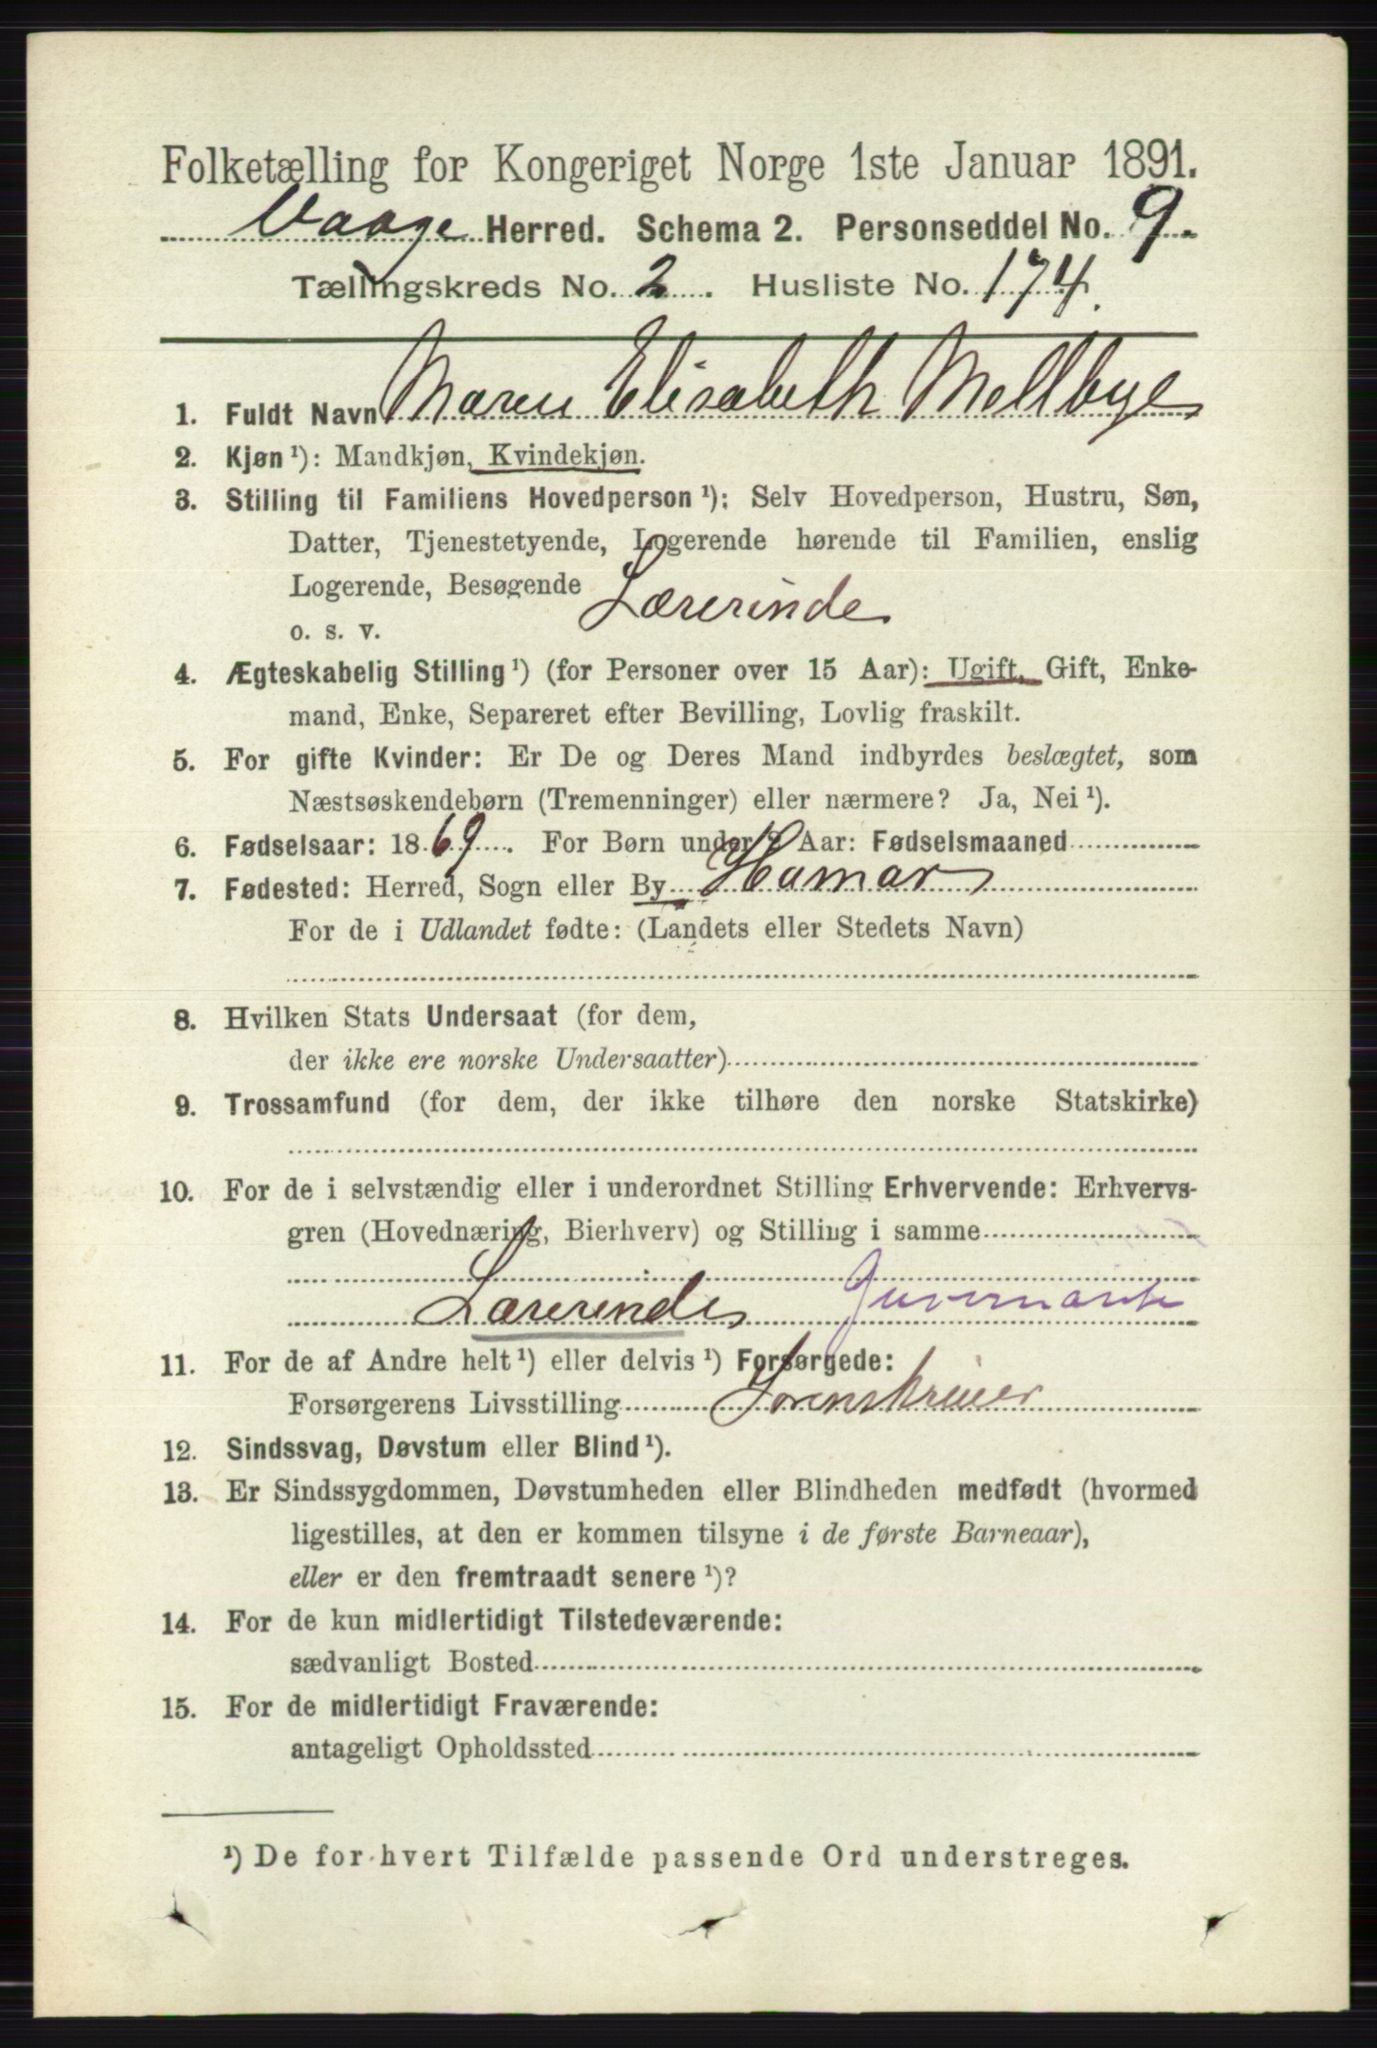 Folketælling for Kongeriget Norge 1ste Januar 1891.
Vaage Herred. Schema 2. Personseddel No. 9.
Tællingskreds No. 2. Husliste No. 174.
1. Fuldt Navn Maren Elisabeth Mellbye
2. Kjøn ¹): Mandkjøn, Kvindekjøn.
3. Stilling til Familiens Hovedperson ¹): Selv Hovedperson, Hustru, Søn,
Datter, Tjenestetyende, Logerende hørende til Familien, enslig
Logerende, Besøgende
o. s. v. Lærerinde
4. Ægteskabelig Stilling ¹) (for Personer over 15 Aar): Ugift, Gift, Enke-
mand, Enke, Separeret efter Bevilling, Lovlig fraskilt.
5. For gifte Kvinder: Er De og Deres Mand indbyrdes beslægtet, som
Næstsøskendebørn (Tremenninger) eller nærmere? Ja, Nei ¹).
6. Fødselsaar: 1869. For Børn under 2 Aar: Fødselsmaaned
7. Fødested: Herred, Sogn eller By Hamar
For de i Udlandet fødte: (Landets eller Stedets Navn)
8. Hvilken Stats Undersaat (for dem,
der ikke ere norske Undersaatter)
9. Trossamfund (for dem, der ikke tilhøre den norske Statskirke)
10. For de i selvstændig eller i underordnet Stilling Erhvervende: Erhvervs-
gren (Hovednæring, Bierhverv) og Stilling i samme
Lærerinde Guvernante
11. For de af Andre helt ¹) eller delvis ¹) Forsørgede:
Forsørgerens Livsstilling Sorenskriver
12. Sindssvag, Døvstum eller Blind ¹).
13. Er Sindssygdommen, Døvstumheden eller Blindheden medfødt (hvormed
ligestilles, at den er kommen tilsyne i de første Barneaar),
eller er den fremtraadt senere ¹)?
14. For de kun midlertidigt Tilstedeværende:
sædvanligt Bosted
15. For de midlertidigt Fraværende:
antageligt Opholdssted
¹) De for hvert Tilfælde passende Ord understreges.